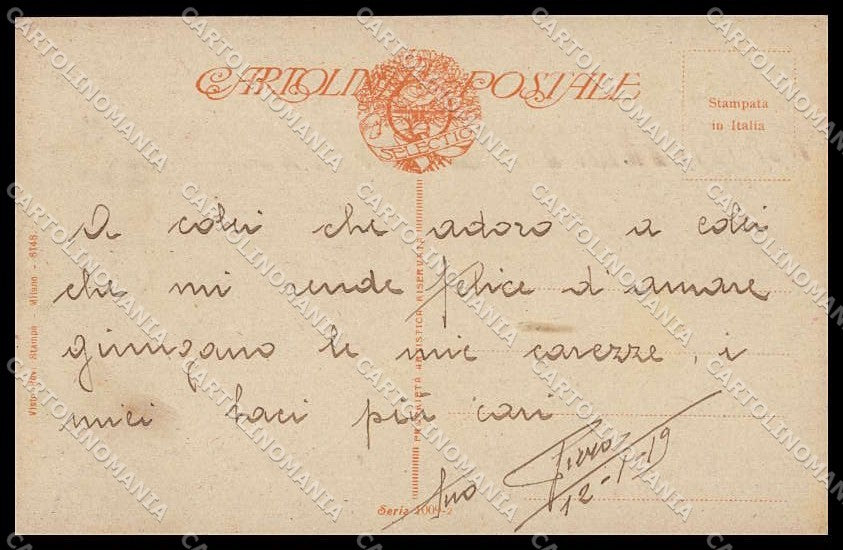 CARTOLINA POSTALE
SELECTIO
Stampata
in Italia
A colei che adoro a colei
che mi rende felice d'amare
giungano le mie carezze, i
miei baci più cari
suo Piero
12-1-19
Visto Rev. Stampa Milano - 8148
PROPRIETÀ ARTISTICA RISERVATA
Serie 1009-2
CARTOLINOMANIA